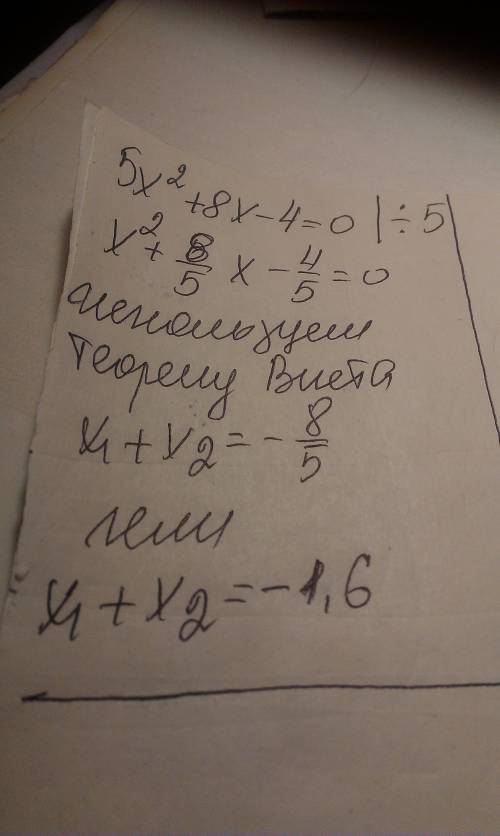 5x² + 8x - 4 = 0 | ÷ 5
x² + 8/5 x - 4/5 = 0
используем
теорему Виета
x₁ + x₂ = - 8/5
или
x₁ + x₂ = - 1,6